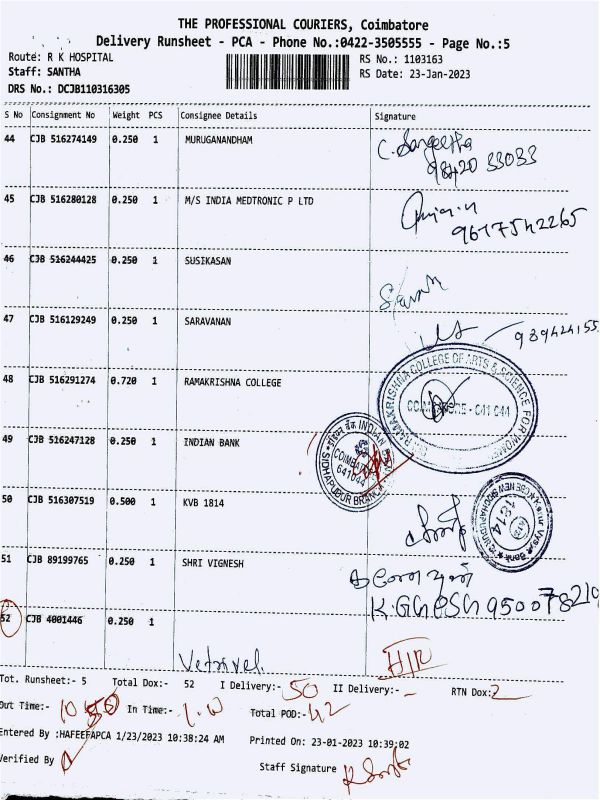 THE PROFESSIONAL COURIERS, Coimbatore
Delivery Runsheet - PCA - Phone No.:0422-3505555 - Page No.:5
Route: R K HOSPITAL
RS No.: 1103163
Staff: SANTHA
RS Date: 23-Jan-2023
DRS No.: DCJB110316305
S No Consignment No Weight PCS Consignee Details Signature
44 CJB 516274149 0.250 1 MURUGANANDHAM C. Sangeetha
98420 33033
45 CJB 516280128 0.250 1 M/S INDIA MEDTRONIC P LTD
9617542265
46 CJB 516244425 0.250 1 SUSIKASAN
47 CJB 516129249 0.250 1 SARAVANAN
989424155
48 CJB 516291274 0.720 1 RAMAKRISHNA COLLEGE
RAMAKRISHNA COLLEGE OF ARTS & SCIENCE FOR WOMEN
COIMBATORE - 641 044
49 CJB 516247128 0.250 1 INDIAN BANK
INDIAN
COIMBATORE
641044
SIDHAPUDUR BRANCH
50 CJB 516307519 0.500 1 KVB 1814
Karur Vysya Bank
1814
51 CJB 89199765 0.250 1 SHRI VIGNESH
K. GaNESH 950078219
52 CJB 4001446 0.250 1
Vetrivel.
Tot. Runsheet:- 5 Total Dox:- 52 I Delivery:- 50 II Delivery:- - RTN Dox: 2
Out Time:- 10 50 In Time:- 1.10 Total POD:- 42
Entered By :HAFEEFAPCA 1/23/2023 10:38:24 AM Printed On: 23-01-2023 10:39:02
Verified By
Staff Signature